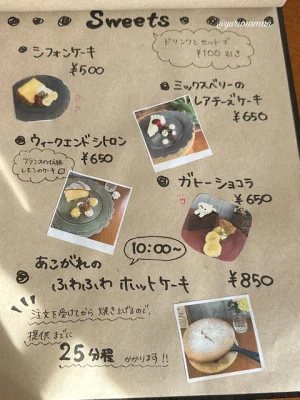 Sweets
シフォンケーキ
¥500
ドリンクとセットで
¥100引き
ミックスベリーの
レアチーズケーキ
¥650
ウィークエンドシトロン
¥650
フランスの伝統
レモンのケーキ
ガトーショコラ
¥650
10:00~
あこがれの
ふわふわ ホットケーキ ¥850
注文を受けてから 焼き上げるので、
提供までに
25分程 かかります!!